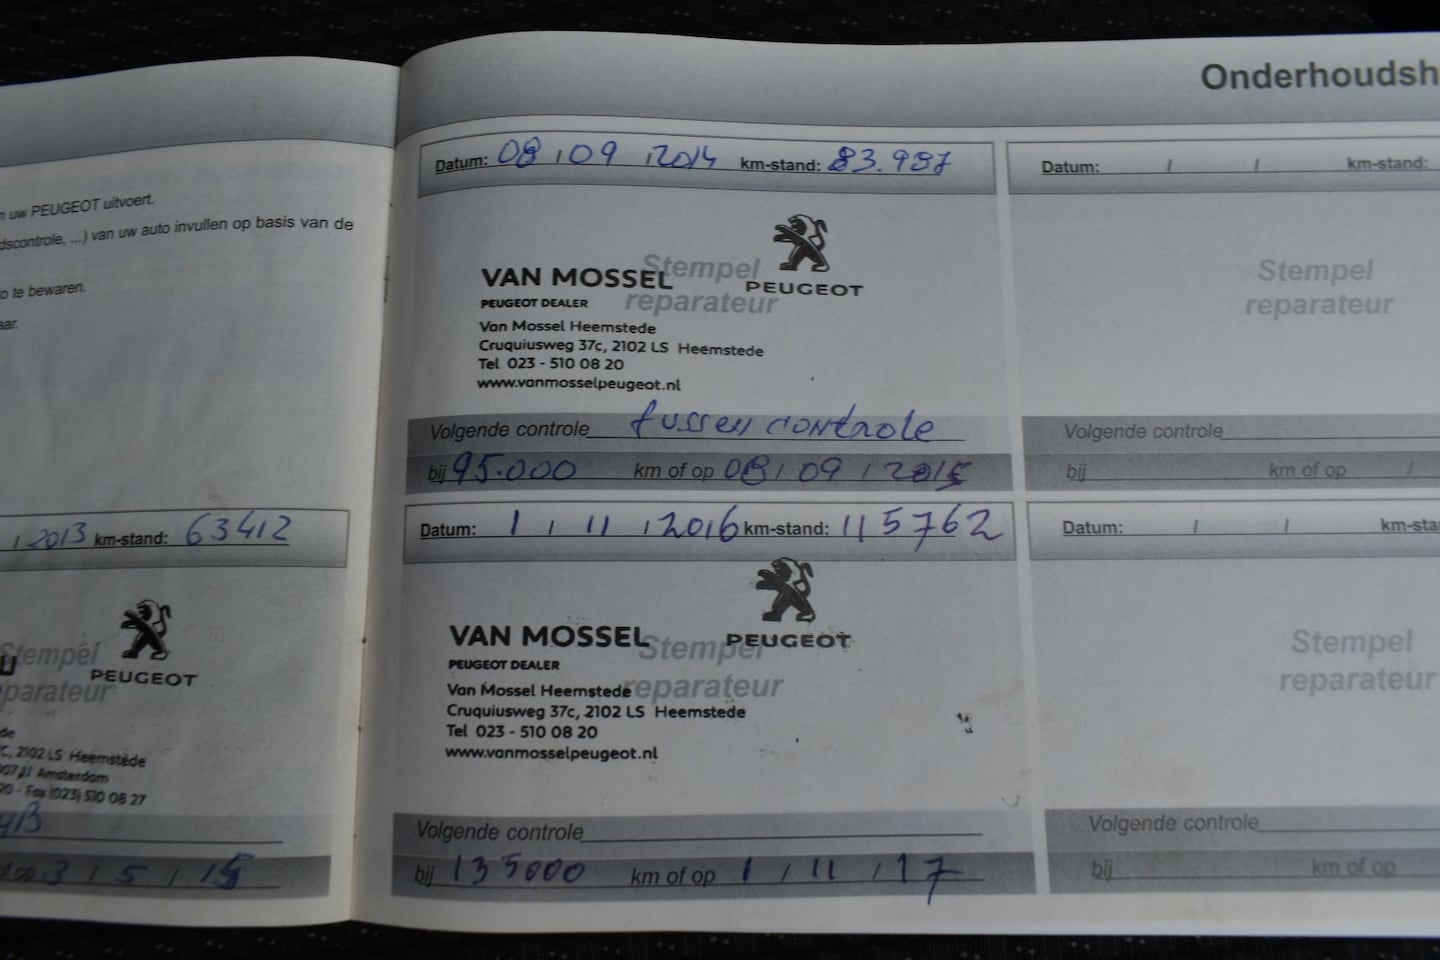 n uw PEUGEOT uitvoert.
dscontrole, ...) van uw auto invullen op basis van de
o te bewaren.
aar.
/ 2013 km-stand: 63412
Stempel
reparateur
PEUGEOT
de
C, 2102 LS Heemstede
Amsterdam
20 - Fax (023) 510 08 27
op 3 / 5 / 15
Onderhoudsh
Datum: 08 / 09 / 2014 km-stand: 83.987
Stempel
reparateur
VAN MOSSEL
PEUGEOT
PEUGEOT DEALER
Van Mossel Heemstede
Cruquiusweg 37c, 2102 LS Heemstede
Tel 023 - 510 08 20
www.vanmosselpeugeot.nl
Volgende controle tussen controle
bij 95.000 km of op 08 / 09 / 2015
Datum: 1 / 11 / 2016 km-stand: 115762
Stempel
reparateur
VAN MOSSEL
PEUGEOT
PEUGEOT DEALER
Van Mossel Heemstede
Cruquiusweg 37c, 2102 LS Heemstede
Tel 023 - 510 08 20
www.vanmosselpeugeot.nl
Volgende controle
bij 135000 km of op 1 / 11 / 17
Datum: / / km-stand:
Stempel
reparateur
Volgende controle
bij km of op /
Datum: / / km-sta
Stempel
reparateur
Volgende controle
bij km of op